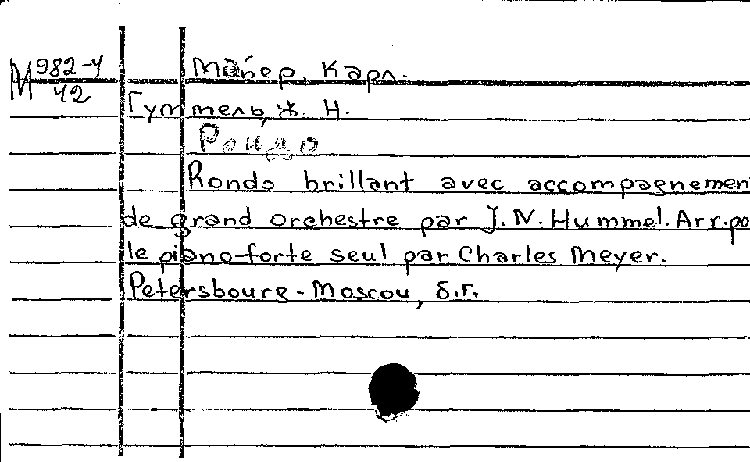 М 982-4
42
Майер, Карл.
Гуммель, Ж. Н.
Рондо
Rondo brillant avec accompagnemen
de grand orchestre par J. N. Hummel. Arr. po
le piano-forte seul par Charles Meyer.
Petersbourg - Moscou, б.г.